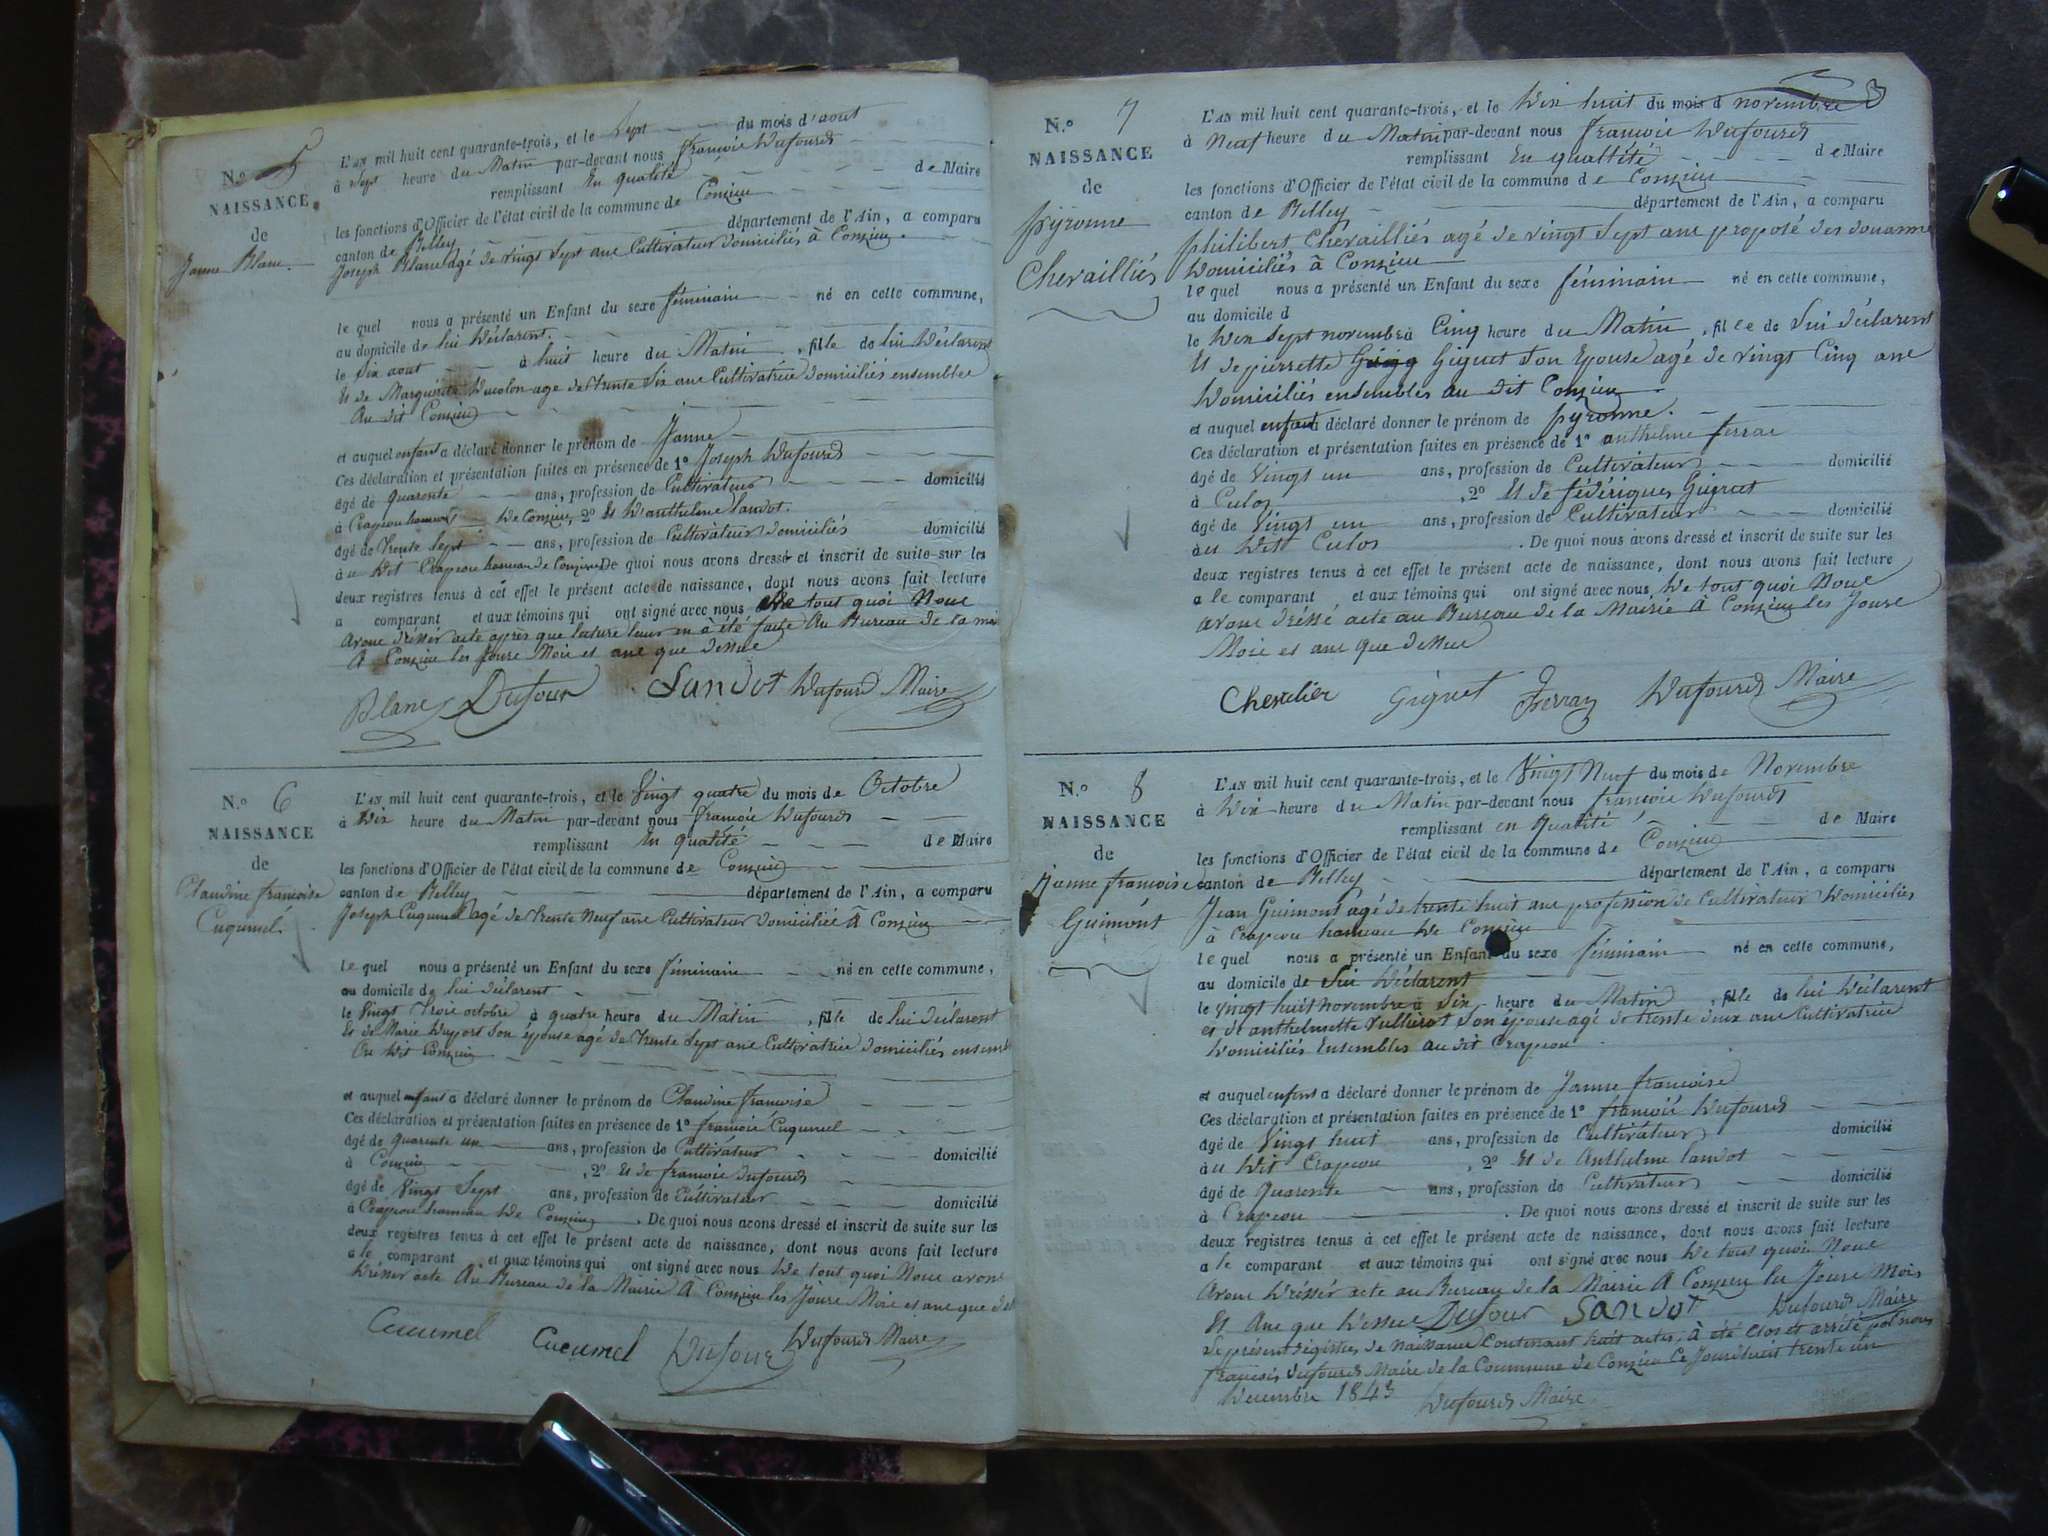 N.o 5
NAISSANCE
de
Janne Blanc.
L'AN mil huit cent quarante-trois, et le sept du mois d'aout
à sept heure du Matin par-devant nous francois Dufourd
remplissant En qualité de Maire
les fonctions d'Officier de l'état civil de la commune de Conzieu
canton de Belley département de l'Ain, a comparu
Joseph Blanc agé de vingt sept ans Cultivateur domiciliés à Conzieu.
le quel nous a présenté un Enfant du sexe féminain né en cette commune,
au domicile de lui Déclarent.
le six aout à huit heure du Matin, fille de lui Déclarent
Et de Marguerite Ducolon agé de trente six ans Cultivatrice domiciliés ensembles
Au dit Conzieu
et auquel enfant a déclaré donner le prénom de Janne
Ces déclaration et présentation faites en présence de 1o Joseph Dufourd
âgé de quarente ans, profession de Cultivateur domicilié
à Crapeou hameau de Conzieu, 2o Et D'anthelme Sandot.
âgé de Trente Sept ans, profession de Cultivateur domiciliés domicilié
au Dit Crapeou hameau de Conzieu De quoi nous avons dressé et inscrit de suite sur les
deux registres tenus à cet effet le présent acte de naissance, dont nous avons fait lecture
a comparant et aux témoins qui ont signé avec nous De tout quoi Nous
avons drésser acte après que lecture leurs en à été faite Au Bureau de la mai
A Conzieu les Jours Mois et ans que dessus
Blanc Dufour Sandot Dufourd Maire
N.o 6
NAISSANCE
de
Claudine francoise
Cuqumel.
L'AN mil huit cent quarante-trois, et le Vingt quatre du mois de Octobre
à Dix heure du Matin par-devant nous francois Dufourd
remplissant En qualité de Maire
les fonctions d'Officier de l'état civil de la commune de Conzieu
canton de Belley département de l'Ain, a comparu
Joseph Cuqumel agé de Trente Neuf ans Cultivateur domiciliés à Conzieu
le quel nous a présenté un Enfant du sexe féminain né en cette commune,
au domicile de lui déclarent
le Vingt Trois octobre à quatre heure du Matin, fille de lui déclarent
Et de Marie Duport son épouse agé de Trente Sept ans Cultivatrice domiciliés ensembl
Au dit Conzieu
et auquel enfant a déclaré donner le prénom de Claudine francoise
Ces déclaration et présentation faites en présence de 1o francois Cuqumel
âgé de quarente un ans, profession de Cultivateur domicilié
à Conzieu, 2o Et de francois Dufourd
âgé de Vingt Sept ans, profession de Cultivateur domicilié
à Crapeou hameau De Conzieu. De quoi nous avons dressé et inscrit de suite sur les
deux registres tenus à cet effet le présent acte de naissance, dont nous avons fait lecture
a le comparant et aux témoins qui ont signé avec nous De tout quoi Nous avons
Drésser acte Au Bureau de la Mairie A Conzieu les Jours Mois et ans que des
Cucumel Cucumel Dufour Dufourd Maire
3
N.o 7
NAISSANCE
de
pyronne
Chevailliés
L'AN mil huit cent quarante-trois, et le Dix huit du mois d novembre
à Neuf heure du Matin par-devant nous francois Dufourd
remplissant En qualitité de Maire
les fonctions d'Officier de l'état civil de la commune de Conzieu
canton de Belley département de l'Ain, a comparu
philibert Chevailliés agé de vingt Sept ans proposé des douanne
Domiciliés à Conzieu
le quel nous a présenté un Enfant du sexe féminain né en cette commune,
au domicile d
le Dix Sept novembre à Cinq heure du Matin, fille de Lui déclarent
Et de pierrette Giguet son Epouse agé de vingt Cinq ans
Domiciliés ensembles au dit Conzieu
et auquel enfant a déclaré donner le prénom de pyronne.
Ces déclaration et présentation faites en présence de 1o anthelme ferrac
âgé de Vingt un ans, profession de Cultivateur domicilié
à Culoz, 2o Et de fédériques Giguet
âgé de Vingt un ans, profession de Cultivateur domicilié
au Dit Culoz. De quoi nous avons dressé et inscrit de suite sur les
deux registres tenus à cet effet le présent acte de naissance, dont nous avons fait lecture
a le comparant et aux témoins qui ont signé avec nous De tout quoi Nous
avons dréssé acte au Bureau de la Mairie A Conzieu les Jours
Mois et ans que dessus
Chevalier Giguet Dufourd Maire
N.o 8
NAISSANCE
de
Janne francoise
Guimont
L'AN mil huit cent quarante-trois, et le Vingt Neuf du mois de Novembre
à Dix heure du Matin par-devant nous francois Dufourd
remplissant en Qualité de Maire
les fonctions d'Officier de l'état civil de la commune de Conzieu
canton de Belley département de l'Ain, a comparu
Jean Guimont agé de trente huit ans profession de Cultivateur Domiciliés
à Crapeou hameau De Conzieu
le quel nous a présenté un Enfant du sexe féminain né en cette commune,
au domicile de Lui Déclarent
le Vingt huit novembre à Six heure du Matin, fille de lui Déclarent
et de anthelmette Vullierot son épouse agé de trente deux ans Cultivatrice
Domiciliés Ensembles au dit Crapeou
et auquel enfant a déclaré donner le prénom de Janne francoise
Ces déclaration et présentation faites en présence de 1o francois Dufourd
âgé de Vingt huit ans, profession de Cultivateur domicilié
au Dit Crapeou, 2o Et de Anthelme Sandot
âgé de Quarente ans, profession de Cultivateur domicilié
à Crapeou. De quoi nous avons dressé et inscrit de suite sur les
deux registres tenus à cet effet le présent acte de naissance, dont nous avons fait lecture
a le comparant et aux témoins qui ont signé avec nous De tout quoi Nous
Avons Drésser acte au Bureau de la Mairie A Conzieu les Jours Mois
Et Ans que Dessus Dufour Sandot Dufourd Maire
Le présent régistres de Naissance Contenant huit actes, à été clos et arrété par nous
francois Dufourd Maire de la Commune de Conzieu Ce Jourdhuit trente un
Decembre 1843 Dufourd Maire